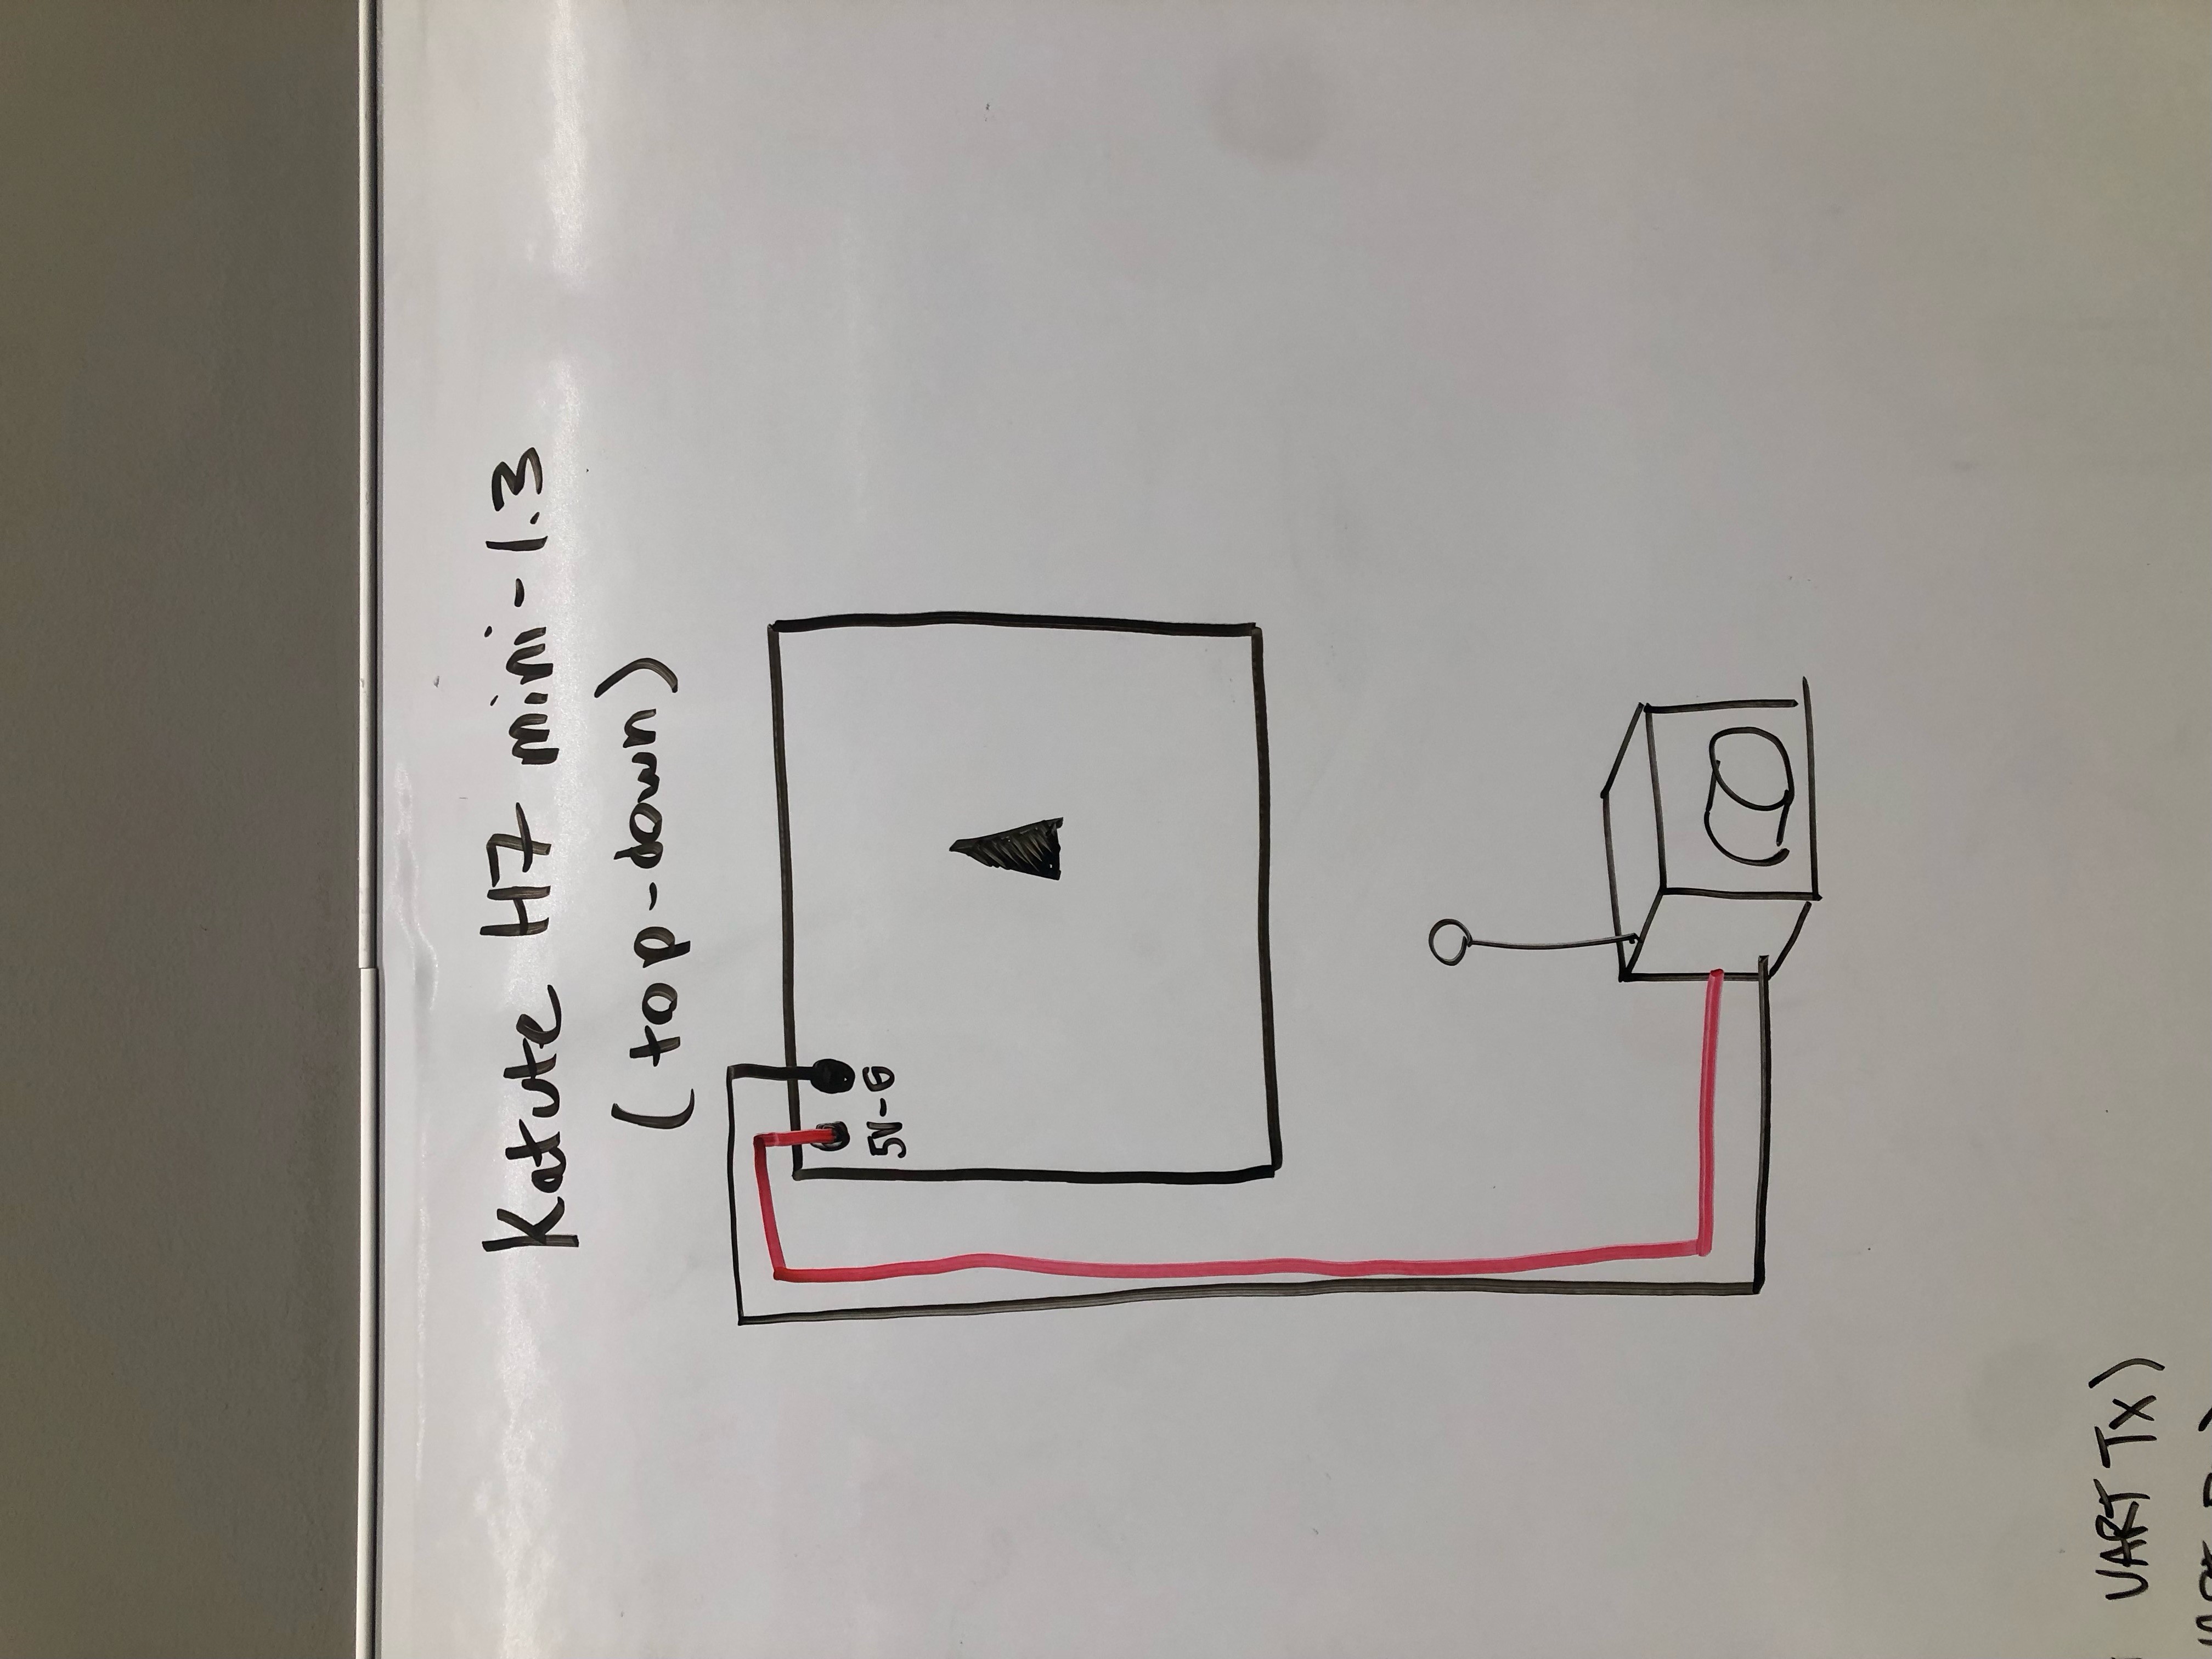 Katute H7 mini-1.3
(top-down)
5V-G
UART Tx)